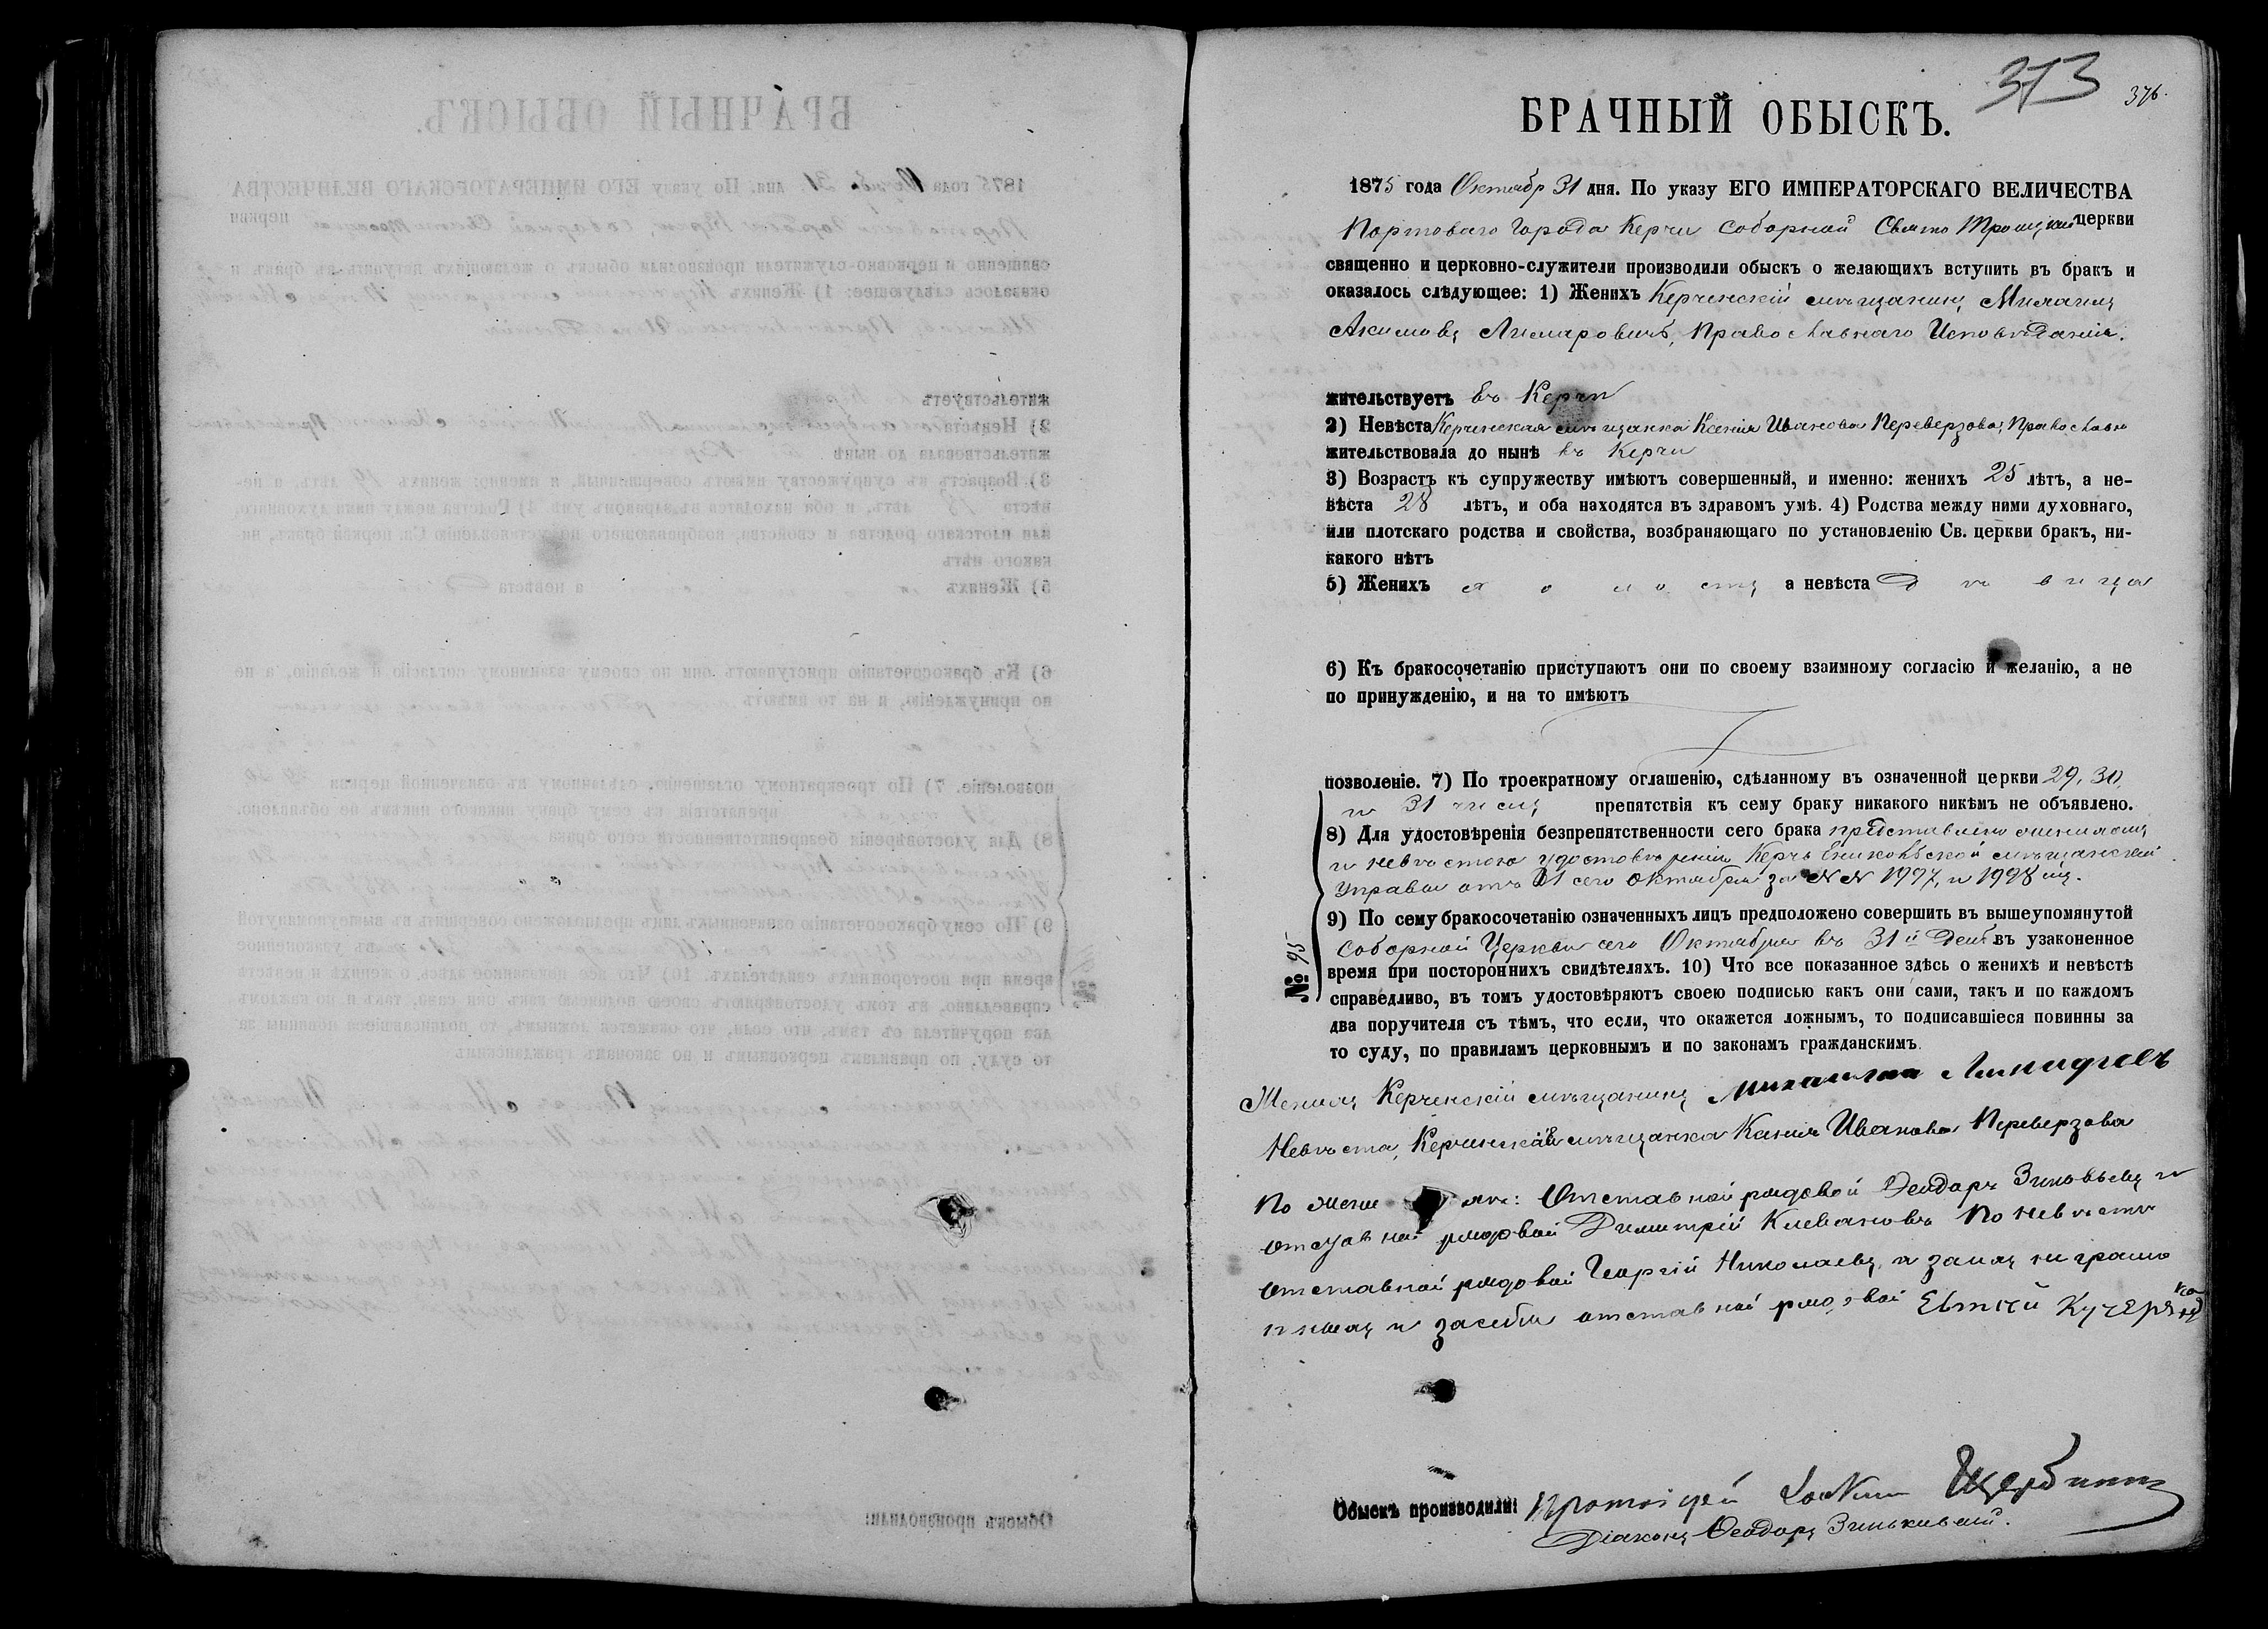 373
376.
БРАЧНЫЙ ОБЫСКЪ.
1875 года Октябр 31 дня. По указу ЕГО ИМПЕРАТОРСКАГО ВЕЛИЧЕСТВА
Портоваго Города Керчи Соборной Свято Троицкой церкви
священно и церковно-служители производили обыскъ о желающихъ вступить въ бракъ и
оказалось слѣдующее: 1) Женихъ Керченскій мѣщанинъ
Акимовъ Православнаго Исповѣданія.
жительствуетъ въ Керчи
2) Невѣста Керченская мѣщанка Ксенія Иванова Переверзова, Православн
жительствовала до нынѣ въ Керчи
3) Возрастъ къ супружеству имѣютъ совершенный, и именно: женихъ 25 лѣтъ, а не-
вѣста 28 лѣтъ, и оба находятся въ здравомъ умѣ. 4) Родства между ними духовнаго,
или плотскаго родства и свойства, возбраняющаго по установленію Св. церкви бракъ, ни-
какого нѣтъ
5) Женихъ холостъ а невѣста дѣвица
6) Къ бракосочетанію приступаютъ они по своему взаимному согласію и желанію, а не
по принужденію, и на то имѣютъ
позволеніе. 7) По троекратному оглашенію, сдѣланному въ означенной церкви 29, 30,
и 31 чиселъ препятствія къ сему браку никакого никѣмъ не объявлено.
8) Для удостовѣренія безпрепятственности сего брака представлено женихомъ
и невѣстою удостовѣренія Керчь Ениколѣской мѣщанской
управы отъ 31 сего Октября за № № 1997, и 1998 мъ.
9) По сему бракосочетанію означенныхъ лицъ предположено совершить въ вышеупомянутой
Соборной Церкви сего Октября въ 31й день въ узаконенное
время при постороннихъ свидѣтеляхъ. 10) Что все показанное здѣсь о женихѣ и невѣстѣ
справедливо, въ томъ удостовѣряютъ своею подписью какъ они сами, такъ и по каждомъ
два поручителя съ тѣмъ, что если, что окажется ложнымъ, то подписавшіеся повинны за
то суду, по правиламъ церковнымъ и по законамъ гражданскимъ.
№ 95
Женихъ Керченскій мѣщанинъ
Невѣста, Керченская мѣщанка Ксенія Иванова Переверзова
По жени хѣ: Отставной рядовой Ѳеодоръ Зиновьевъ и
отставной рядовой Димитрій По невѣстѣ
отставной рядовой Георгій Николаевъ, а за нихъ неграмо
тныхъ и за себя отставной рядовой Евтисй
Обыскъ производили: Протоіерей Щербина
Діаконъ Ѳеодоръ Зиньковскій.